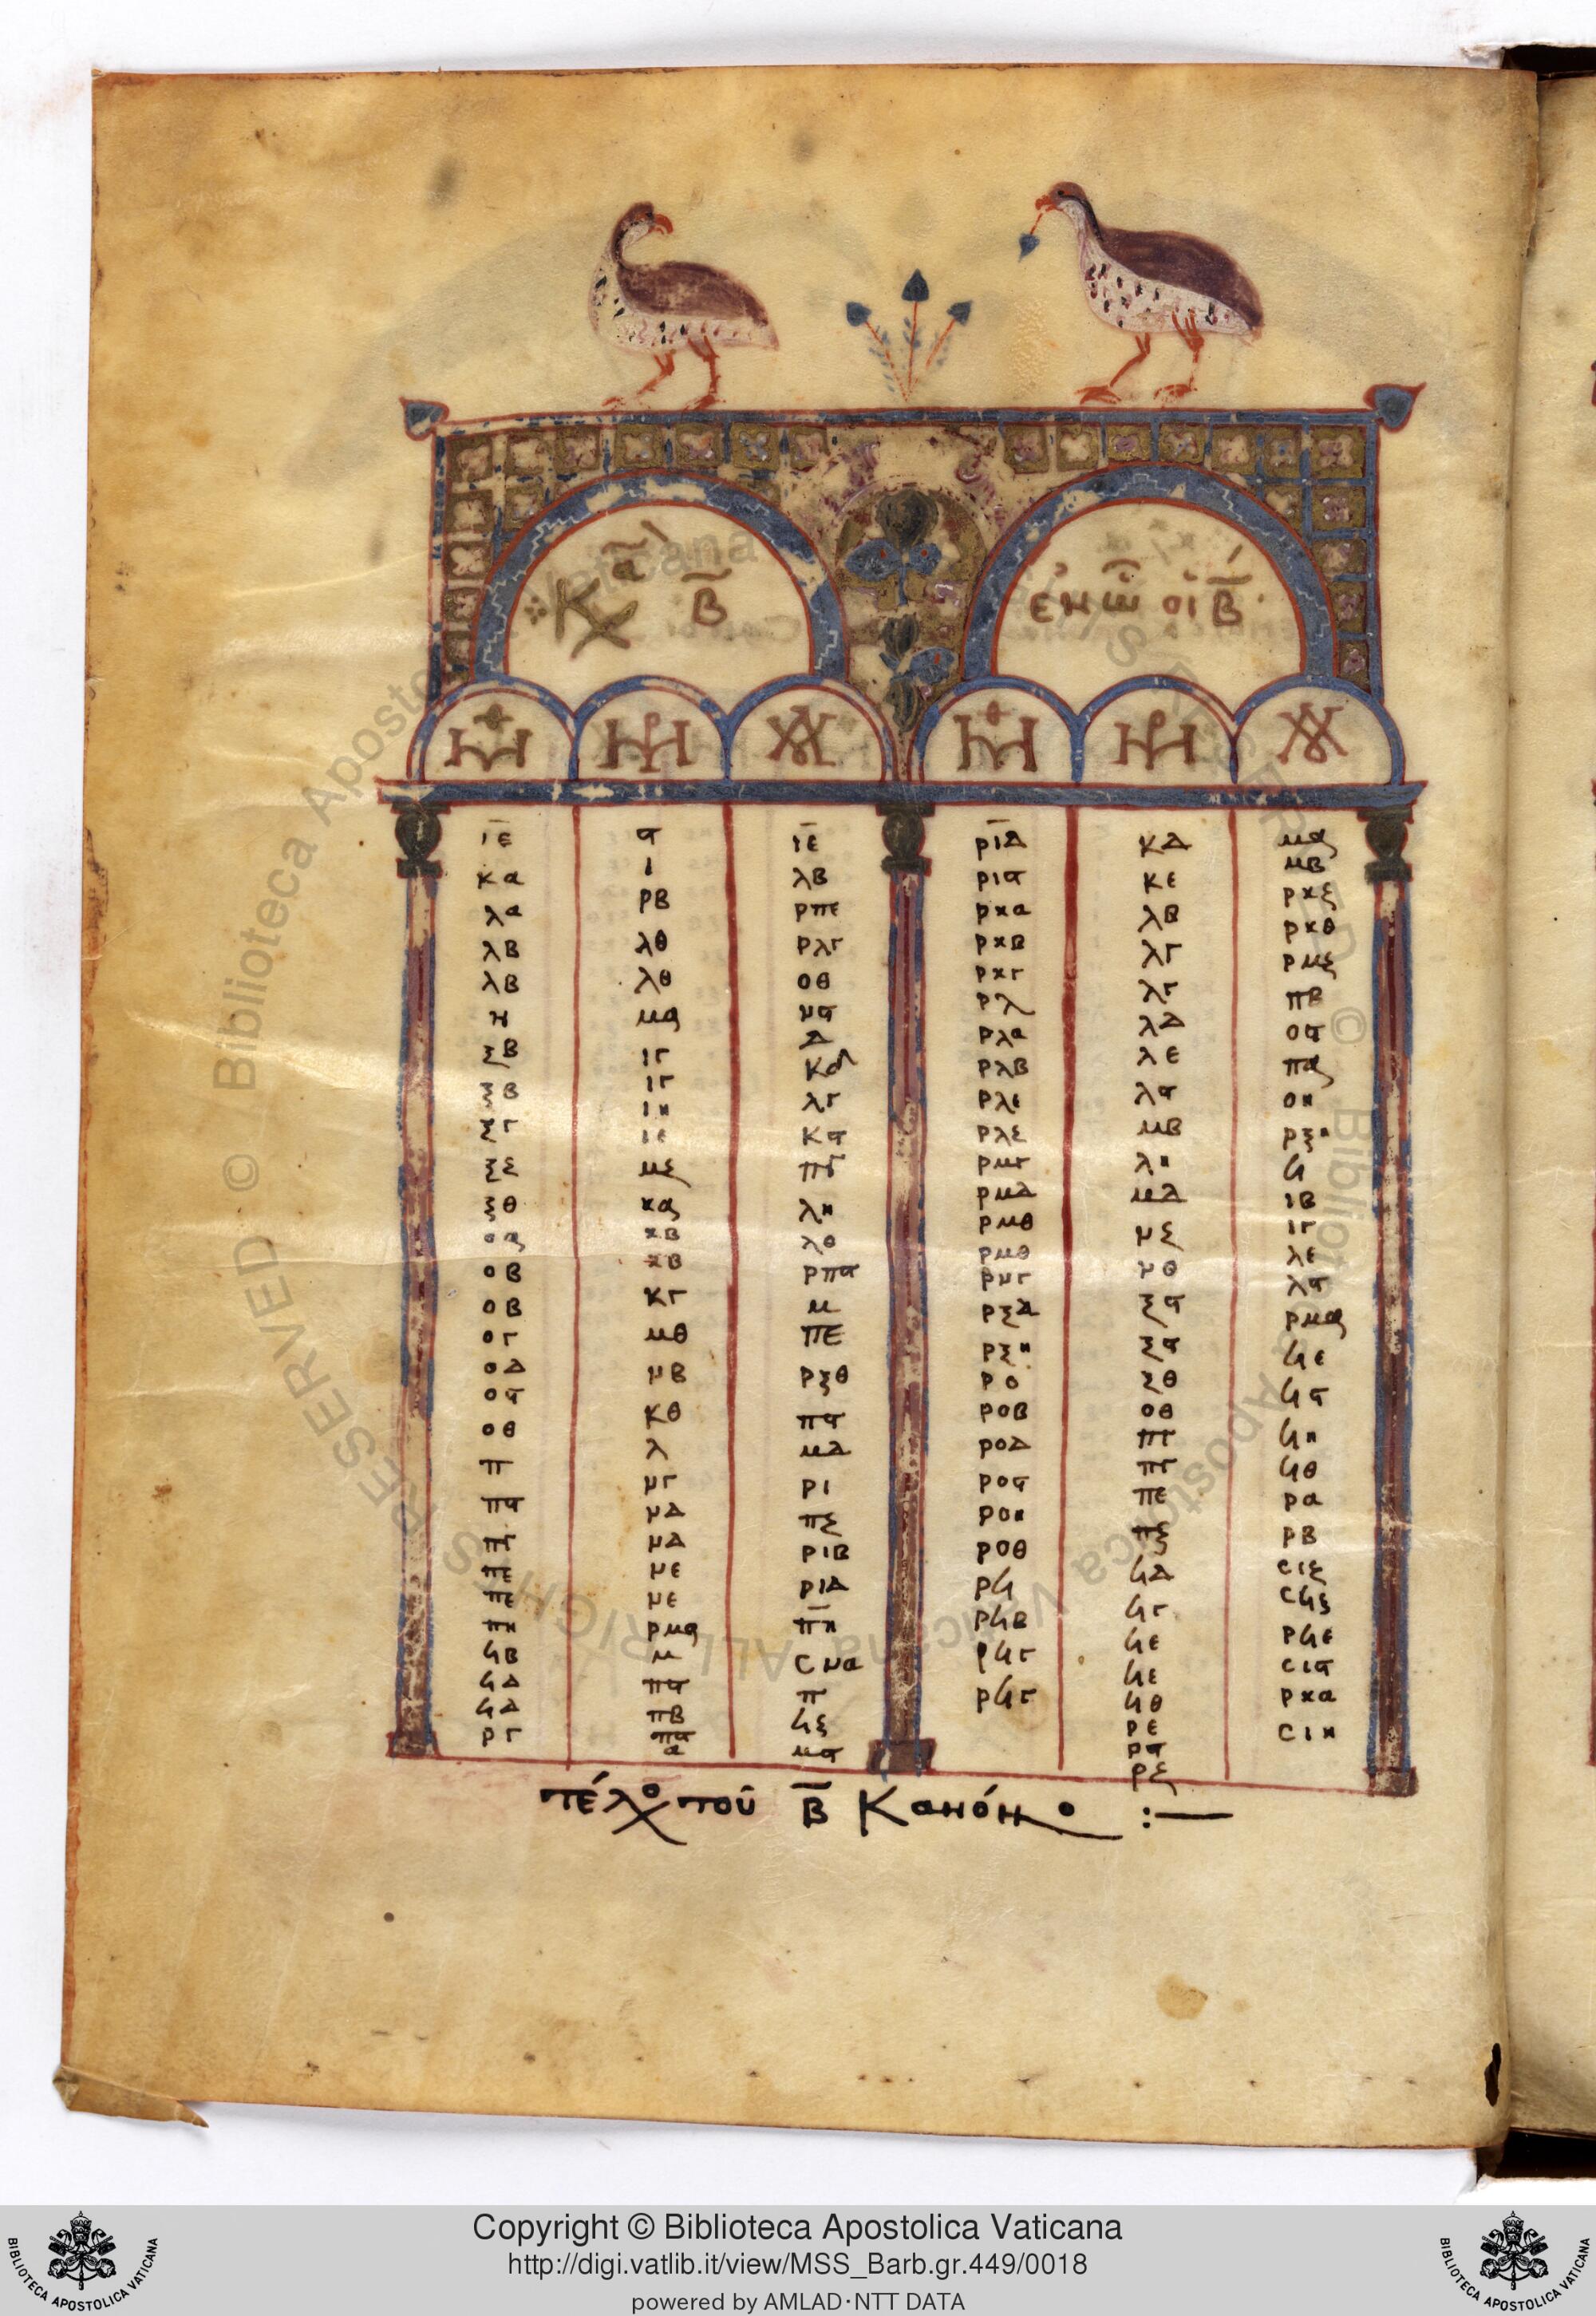 Κα̅ν Β̅
ἐν ὧ οἱ Γ̅
ΜΘ ΜΡ Λ ΜΘ ΜΡ Λ
ιε ϛ ιε ριδ κδ μα
κα ι λβ ριϛ κε μβ
λα ρβ ρπε ρκα λβ ρκζ
λβ λθ ρλγ ρκβ λγ ρκθ
λβ λθ οθ ρκγ λγ ρμζ
μα μϛ ρλ λδ πβ
ξβ ιγ δ ρλα λε οϛ
ξβ ιγ κδ ρλβ λϛ πα
ξγ ιη λγ ρλε μβ οη
ιε κϛ ρλε λη ρξη
μζ πγ ρμγ μδ ϟ
ξθ κα λη ρμδ μζ ιβ
οα κβ λθ ρμθ μθ ιγ
οβ κβ ρπϛ ρμθ ξϛ λε
οβ κγ μ ρμγ ξϛ λϛ
ογ μθ πε ρξδ ξθ ρμα
οδ μβ ρξθ ρξη οθ ϟε
οϛ κθ πϛ ρο πγ ϟϛ
οθ λ μδ ροβ πγ ϟη
π μγ ρι ροδ πε ϟθ
πϛ μδ πζ ροϛ πζ ρα
πγ μδ ριβ ροη ϟδ ρβ
πε με ριδ ροθ ϟγ σιζ
πε με πη ρϟ ϟε σϟζ
πη ρμα σμα ρϟβ ϟε ρϟε
ϟβ μ π ρϟγ ϟθ σιϛ
ϟδ πϛ ϟζ ρϟγ ρε ρκα
ϟδ πβ μϛ ρϛ σιη
ργ πϛ ρζ
α
τέλο τοῦ Β̅ Κανόνο :—
© Biblioteca Apostolica Vaticana ALL RIGHTS RESERVED © Biblioteca Apostolica Vaticana ALL RIGHTS RESERVED
Copyright © Biblioteca Apostolica Vaticana
http://digi.vatlib.it/view/MSS_Barb.gr.449/0018
powered by AMLAD·NTT DATA
BIBLIOTECA APOSTOLICA VATICANA
BIBLIOTECA APOSTOLICA VATICANA